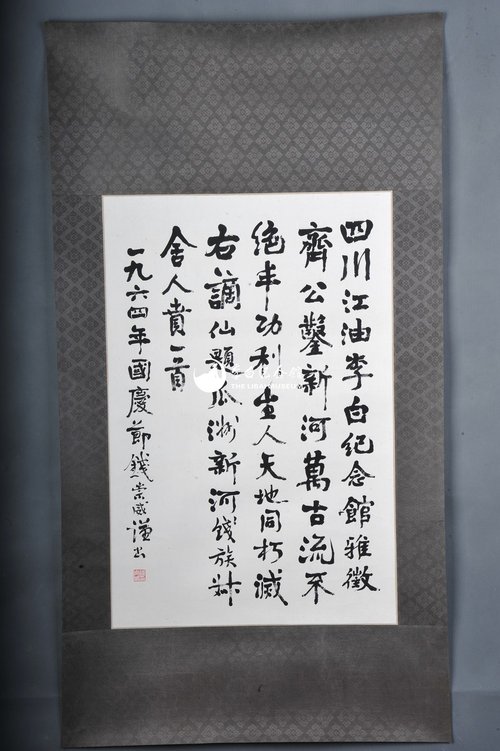 四川江油李白紀念館雅徵
齊公鑿新河萬古流不
絶丰功利生人天地同朽滅
右謫仙題瓜洲新河餞族叔
舍人賁一首
一九六四年國慶節錢崇威謹书
THE LIBAI MUSEUM